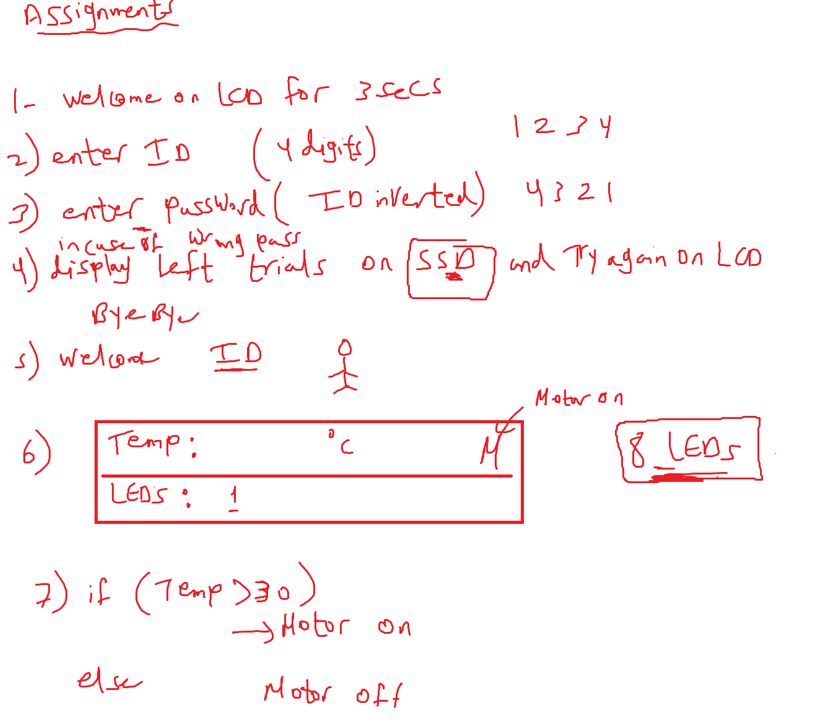 Assignments
1- Welcome on LCD for 3 secs
2) enter ID (4 digits) 1 2 3 4
3) enter Password ( ID inverted) 4 3 2 1
incase of Wrong pass
4) display left trials on SSD and Try again on LCD
Bye Bye
5) Welcome ID
Motor on
6) Temp: °C M
8 LEDs
LEDS: 1
7) if (Temp >30)
→ Motor on
else Motor off